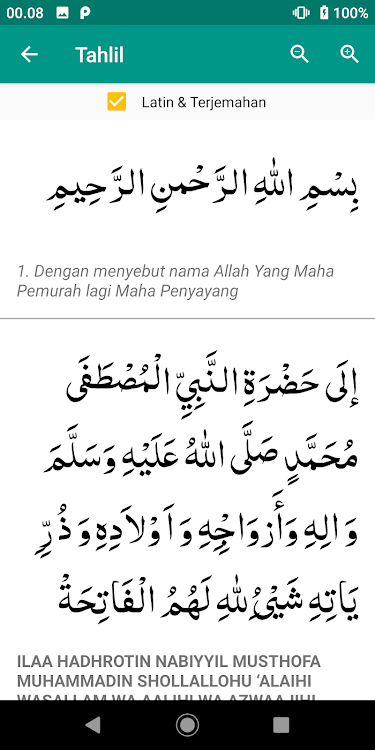 00.08
100%
Tahlil
Latin & Terjemahan
بِسْمِ اللهِ الرَّحْمنِ الرَّحِيمِ
1. Dengan menyebut nama Allah Yang Maha
Pemurah lagi Maha Penyayang
إلَى حَضْرَةِ النَّبِيِّ الْمُصْطَفَى
مُحَمَّدٍ صَلَّى اللهُ عَلَيْهِ وَسَلَّمَ
وَالِهِ وَأَزوَاجِهِ وَاَوْلَادِهِ وَذُرِّ
يَاتِهِ شَيْئُ لِلهِ لَهُمُ الْفَاتِحَةْ
ILAA HADHROTIN NABIYYIL MUSTHOFA
MUHAMMADIN SHOLLALLOHU ‘ALAIHI
WASALLAM WA AALIHI WA AZWAAJIHI